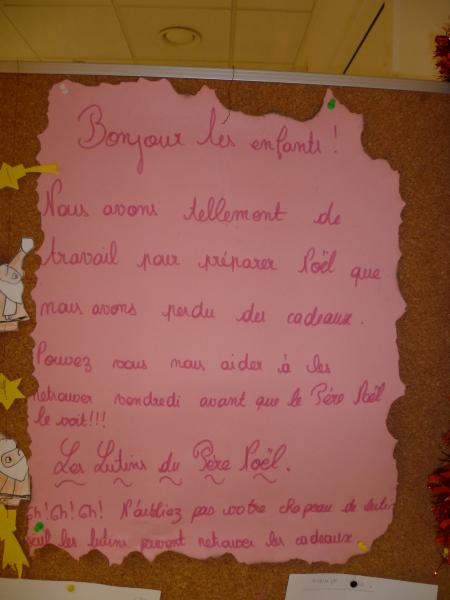 Bonjour les enfants !
Nous avons tellement de
travail pour préparer Noël que
nous avons perdu des cadeaux.
Pouvez vous nous aider à les
retrouver vendredi avant que le Père Noël
le voit!!!
Les Lutins du Père Noël.
Oh! Oh! Oh! N'oubliez pas votre chapeau de lutin
seul les lutins peuvent retrouver les cadeaux